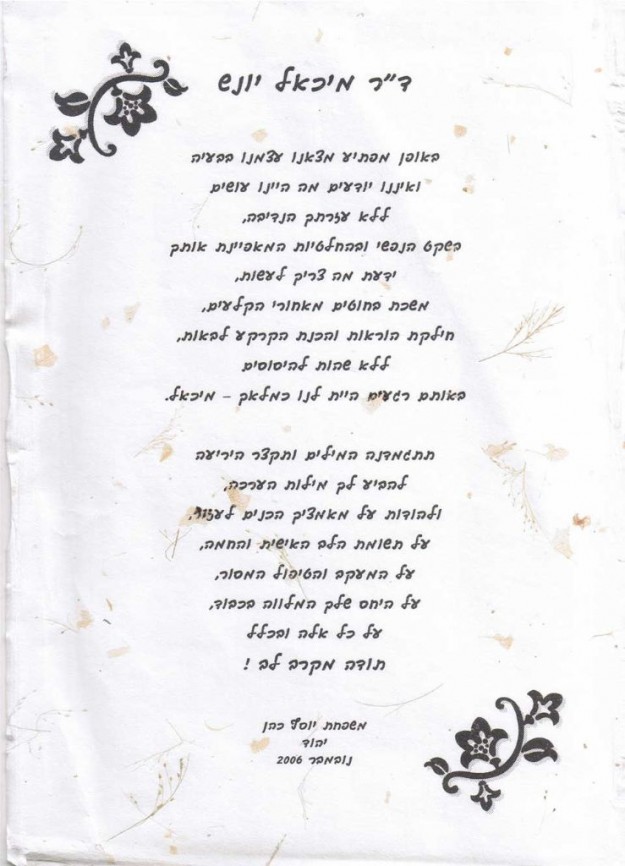 ד"ר מיכאל יונש
באופן מפתיע מצאנו עצמנו בבעיה
ואיננו יודעים מה היינו עושים
ללא עזרתך הנדיבה,
בשקט הנפשי ובהחלטיות המאפיינת אותך
ידעת מה צריך לעשות,
משכת בחוטים מאחורי הקלעים,
חילקת הוראות והכנת הקרקע לבאות,
ללא שהות להיסוסים
באותם רגעים היית לנו כמלאך – מיכאל.
תתגמדנה המילים ותקצר היריעה
להביע לך מילות הערכה,
ולהודות על מאמציך הכנים לעזור,
על תשומת הלב האישית והחמה,
על המעקב והטיפול המסור,
על היחס שלך המלווה בכבוד,
על כל אלה ובכלל
תודה מקרב לב !
משפחת יוסף כהן
יהוד
נובמבר 2006